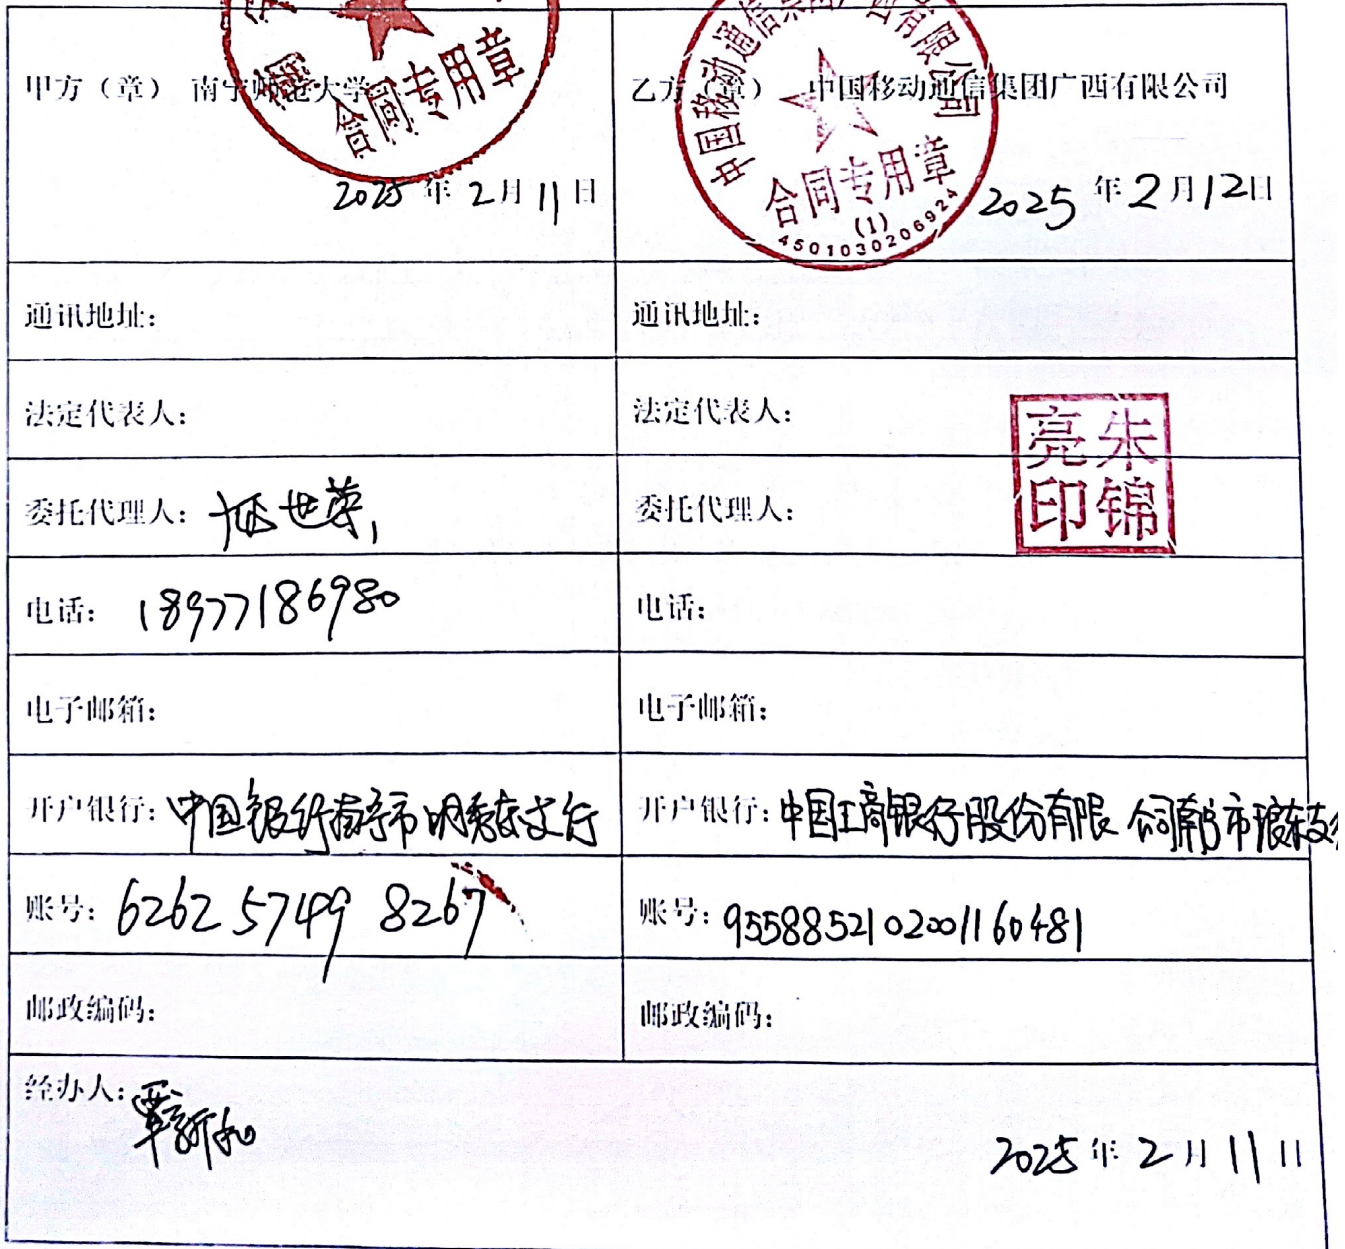 甲方（章） 南宁师范大学
合同专用章
2025年2月11日
乙方（章） 中国移动通信集团广西有限公司
中国移动通信集团广西有限公司
合同专用章
(1)
4501030206924
2025年2月12日
通讯地址：
通讯地址：
法定代表人：
法定代表人：
朱锦亮印
委托代理人：
委托代理人：
电话： 18977186980
电话：
电子邮箱：
电子邮箱：
开户银行：中国银行南宁市明秀东支行
开户银行：中国工商银行股份有限公司南宁市琅东支行
账号：6262 5749 8267
账号：9558852102001160481
邮政编码：
邮政编码：
经办人：
2025年2月11日